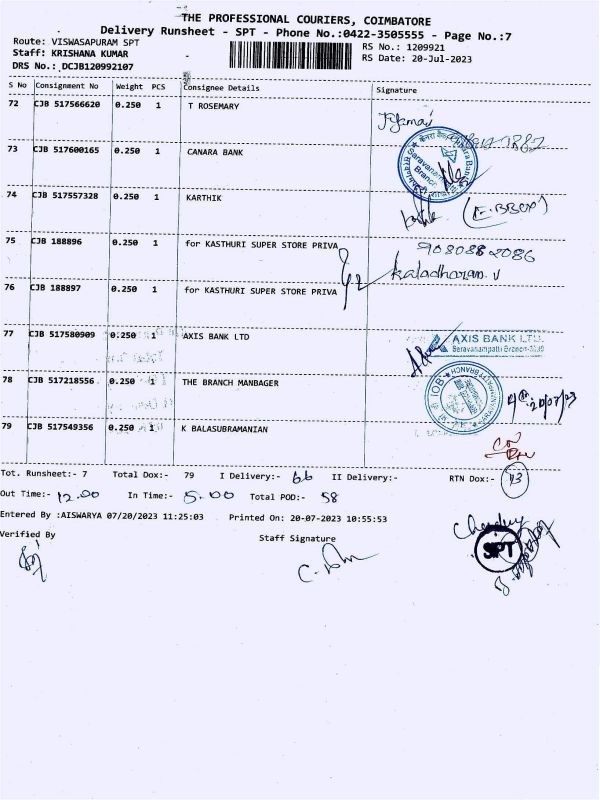 THE PROFESSIONAL COURIERS, COIMBATORE
Delivery Runsheet - SPT - Phone No.:0422-3505555 - Page No.:7
Route: VISWASAPURAM SPT
RS No.: 1209921
Staff: KRISHANA KUMAR
RS Date: 20-Jul-2023
DRS No.: DCJB120992107
S No Consignment No Weight PCS Consignee Details Signature
72 CJB 517566620 0.250 1 T ROSEMARY
73 CJB 517600165 0.250 1 CANARA BANK
Saravanampatti
Branch
74 CJB 517557328 0.250 1 KARTHIK
75 CJB 188896 0.250 1 for KASTHURI SUPER STORE PRIVA
9080882086
Kaladharan. V
76 CJB 188897 0.250 1 for KASTHURI SUPER STORE PRIVA
77 CJB 517580909 0.250 1 AXIS BANK LTD
AXIS BANK LTD.
Saravanampatti Branch
78 CJB 517218556 0.250 1 THE BRANCH MANBAGER
IOB
20/07/23
79 CJB 517549356 0.250 1 K BALASUBRAMANIAN
Tot. Runsheet:- 7 Total Dox:- 79 I Delivery:- 66 II Delivery:- RTN Dox:- 13
Out Time:- 12.00 In Time:- 5.00 Total POD:- 58
Entered By :AISWARYA 07/20/2023 11:25:03 Printed On: 20-07-2023 10:55:53
Verified By Staff Signature
SPT